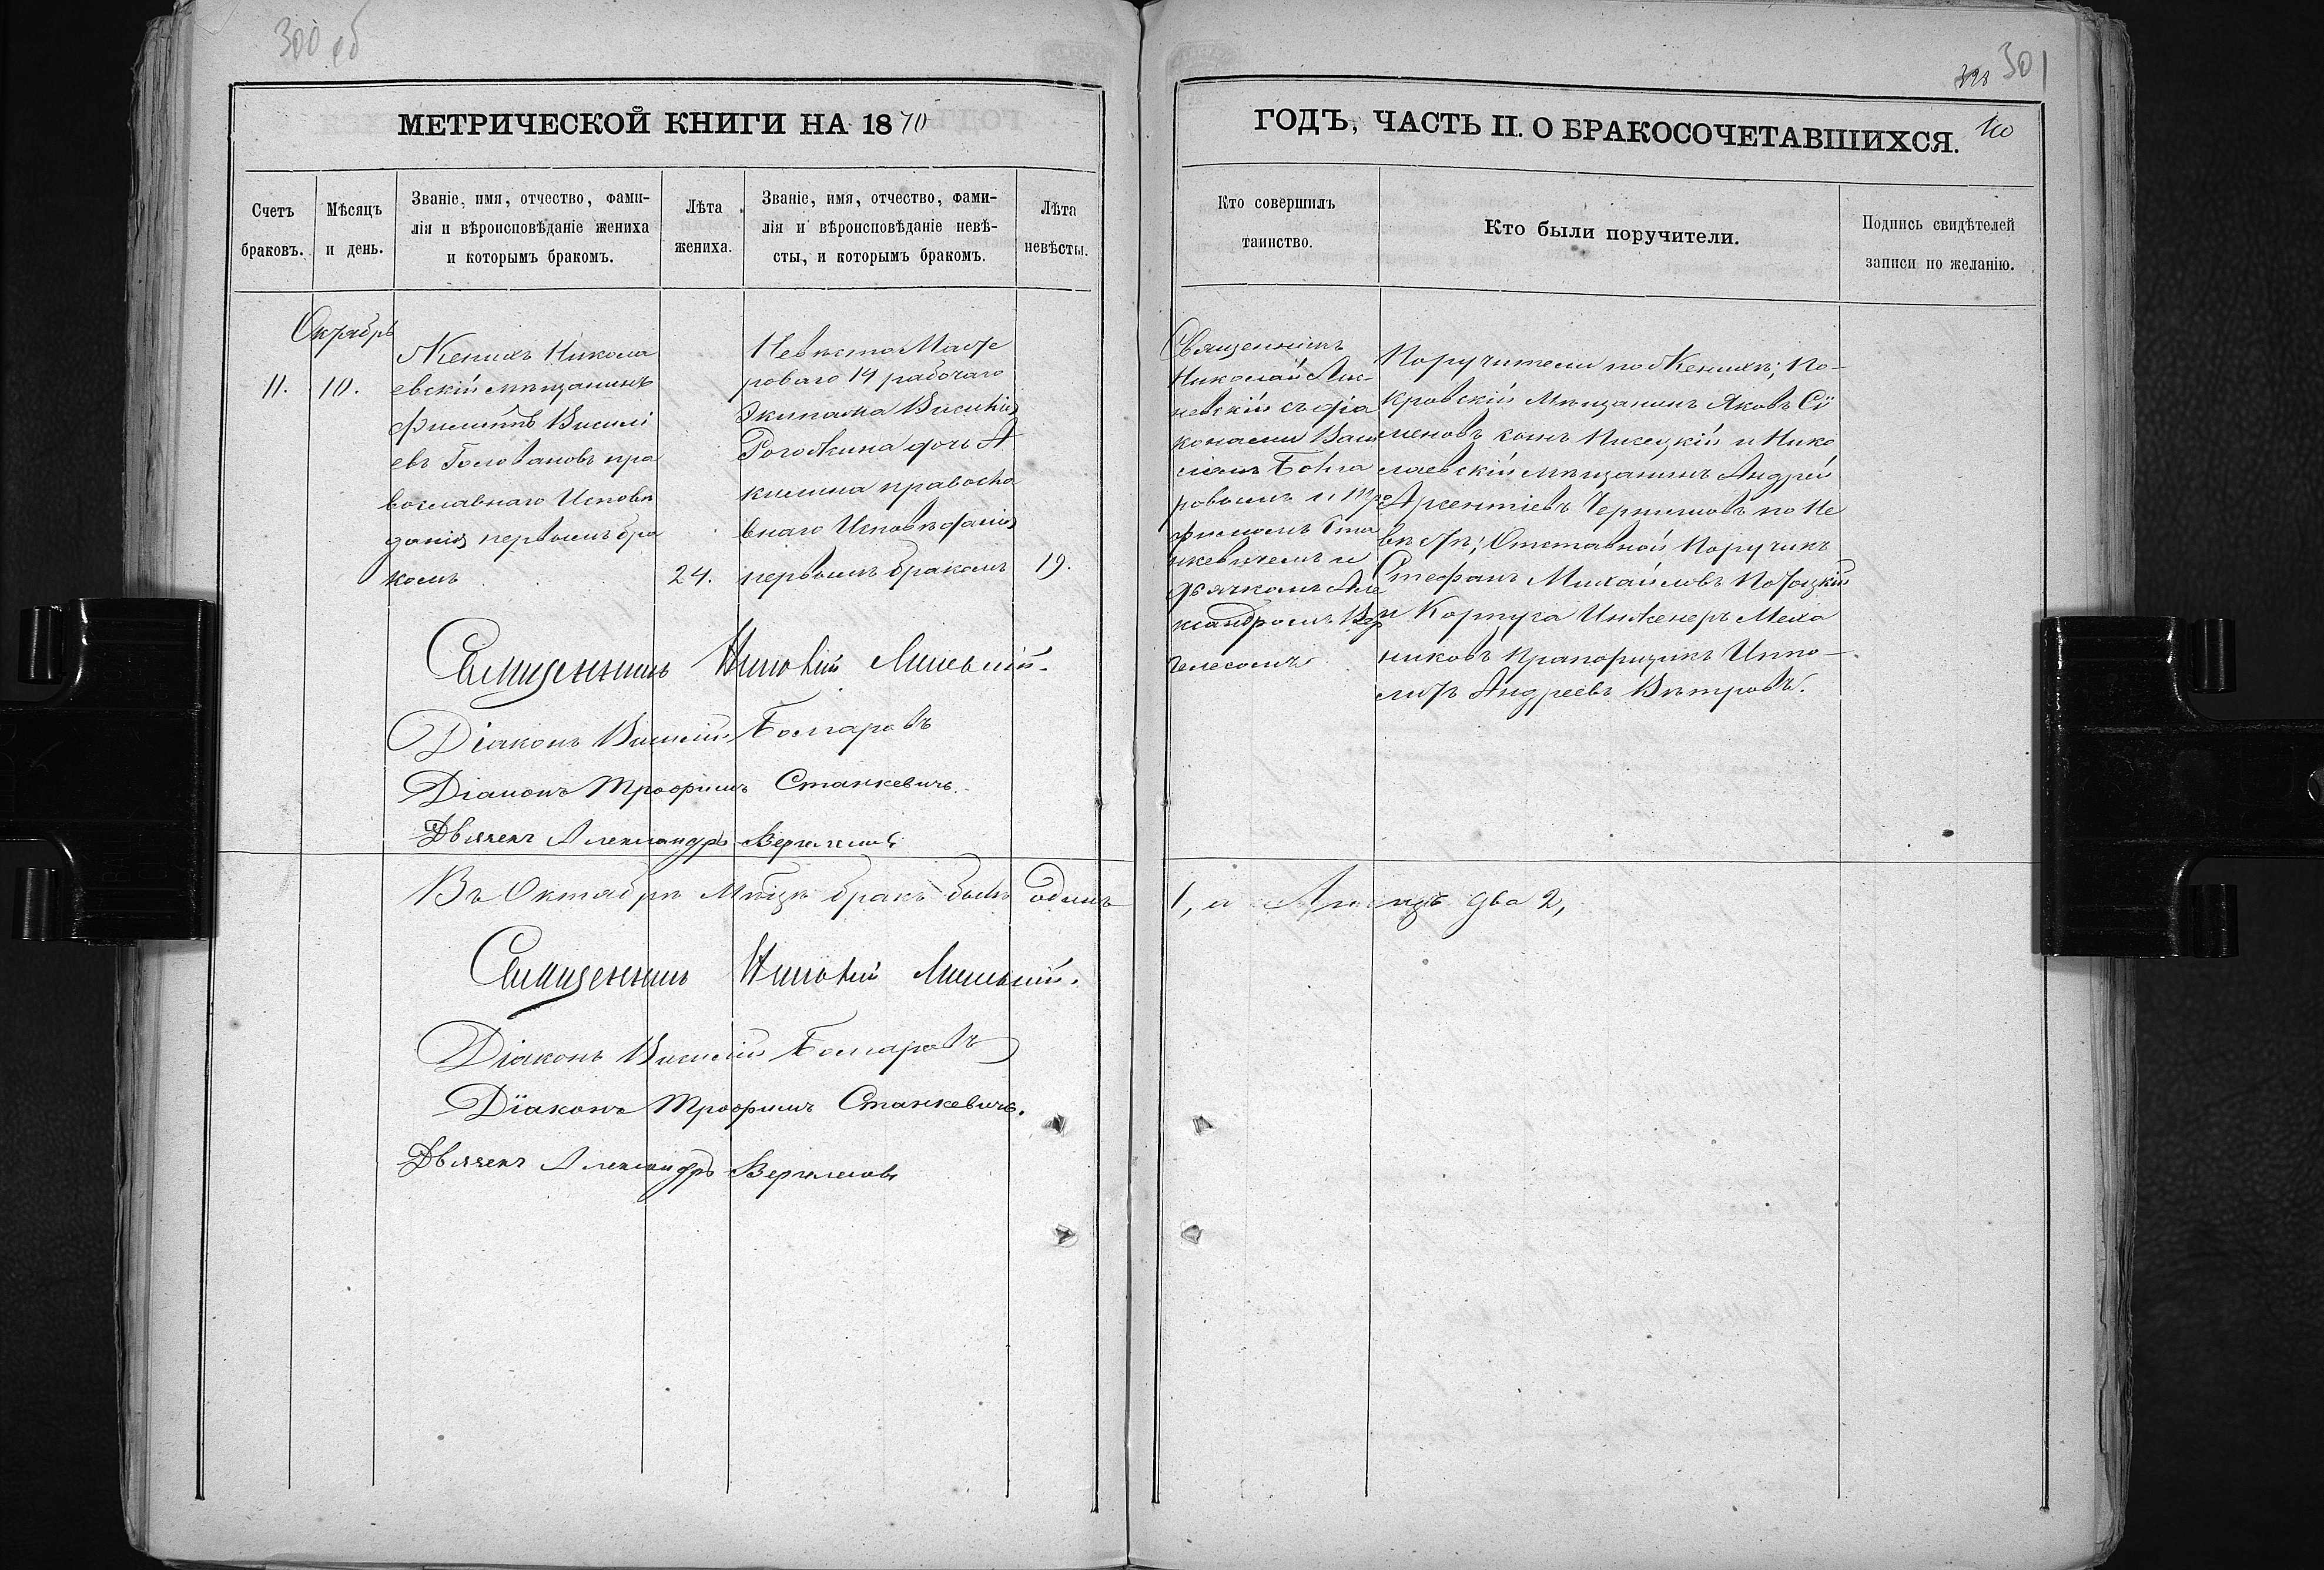 300 об
МЕТРИЧЕСКОЙ КНИГИ НА 1870
Счетъ браковъ.
Мѣсяцъ и день.
Званіе, имя, отчество, фами-
лія и вѣроисповѣданіе жениха
и которымъ бракомъ.
Лѣта
жениха.
Званіе, имя, отчество, фами-
лія и вѣроисповѣданіе невѣ-
сты, и которымъ бракомъ.
Лѣта
невѣсты.
Октябрь
11. 10.
Женихъ Никола
евскій мѣщанинъ
Филиппъ Василі
евъ Головановъ пра
вославнаго Исповѣ
данія первымъ бра
комъ
24.
Невѣста Масте
роваго 14 рабочаго
Экипажа Василія
Рогожкина дочь А
килина правосла
внаго Исповѣданія
первымъ бракомъ
19.
Священникъ Николай
Діаконъ Василій Болгаровъ
Діаконъ Трофимъ Станкевичъ.
Дьячекъ Александръ Вергелесовъ
Въ Октябрѣ Мѣсяцѣ бракъ былъ одинъ
Священникъ Николай
Діаконъ Василій Болгаровъ
Діаконъ Трофимъ Станкевичъ.
Дьячекъ Александръ Вергелесовъ
301
ГОДЪ, ЧАСТЬ II. О БРАКОСОЧЕТАВШИХСЯ.
Кто совершилъ
таинство.
Кто были поручители.
Подпись свидѣтелей
записи по желанію.
Священникъ
Николай
съ діа
конами Васи
ліемъ Болга
ровымъ и Тро
фимомъ Ста
нкевичемъ и
дьячкомъ Але
ксандромъ Вер
гелесомъ
Поручители по Женихѣ; По-
кровскій Мѣщанинъ Яковъ Сѵ
меновъ сынъ и Нико
лаевскій мѣщанинъ Андрей
Арсентіевъ по Не
вѣстѣ; Отставной Поручикъ
Стефанъ Михайловъ Потоцкій
и Корпуса Инженеръ Меха
никовъ Прапорщикъ Иппо-
литъ Андреевъ Вѣтровъ.
1, а лицъ два 2,